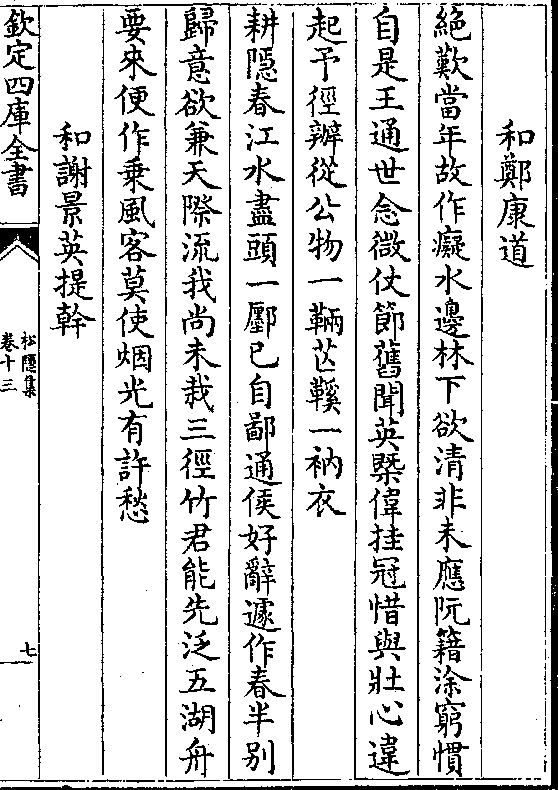 和鄭康道
絶歎當年故作癡水邊林下欲清非未應阮籍涂窮慣
自是王通世念㣲仗節舊聞英槩偉挂冠惜與壯心違
起予徑辦從公物一輛芒鞵一衲衣
耕隠春江水盡頭一㕓已自鄙通侯好辭遽作春半别
歸意欲兼天際流我尚未栽三徑竹君能先泛五湖舟
要來便作乗風客莫使烟光有許愁
和謝景英提幹
欽定四庫全書
松隠集
卷十三
七